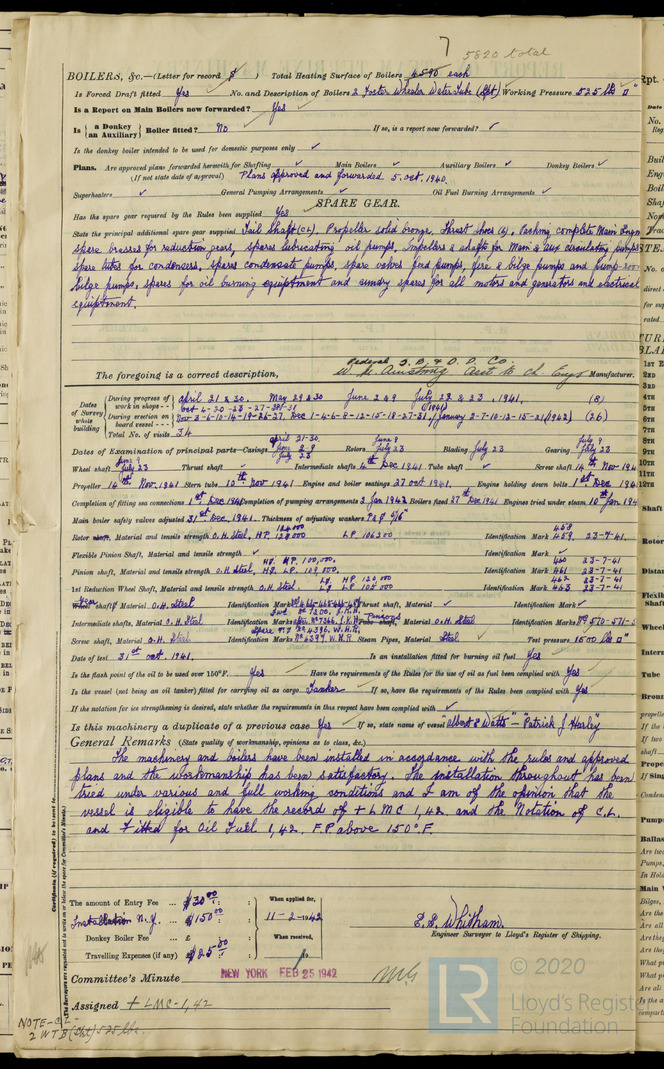 7 5820 total
BOILERS, &c.—(Letter for record S) Total Heating Surface of Boilers 4590 each
Is Forced Draft fitted Yes No. and Description of Boilers 2 Foster Wheeler Water Tube (Spt) Working Pressure 525 lbs □"
Is a Report on Main Boilers now forwarded? Yes
Is { a Donkey / an Auxiliary } Boiler fitted? No If so, is a report now forwarded? ✓
Is the donkey boiler intended to be used for domestic purposes only ✓
Plans. Are approved plans forwarded herewith for Shafting ✓ Main Boilers ✓ Auxiliary Boilers ✓ Donkey Boilers ✓
(If not state date of approval) Plans approved and forwarded 5. Oct. 1940.
Superheaters ✓ General Pumping Arrangements ✓ Oil Fuel Burning Arrangements ✓
SPARE GEAR.
Has the spare gear required by the Rules been supplied Yes
State the principal additional spare gear supplied Tail Shaft (CL). Propeller solid bronze, Thrust shoes (4). Packing complete Main Engn
spare brasses for reduction gears, spares lubricating oil pumps, Impellers & shafts for Main & Aux circulating pumps
spare tubes for condensers, spares condensate pumps, spare valves feed pumps, fire & bilge pumps and pump-room
bilge pumps, spares for oil burning equiptment and sundry spares for all motors and generators and electrical
equiptment.
Federal S. B. & D. D. Co.
The foregoing is a correct description, W. M. Armstrong Asst to Ch Engr Manufacturer.
Dates of Survey while building
During progress of work in shops - - April 21 & 30. May 29 & 30 June 2 & 9 July 22 & 23. 1941. (8)
During erection on board vessel - - - Oct 4-20-23-27-28/31 Nov 3-6-10-14-19-26-27. Dec 1-4-6-9-12-15-18-27-31 (1941) January 2-7-10-12-15-21 (1942) (26)
Total No. of visits 34
Dates of Examination of principal parts—Casings April 21-30. June 2-9 July 23 Rotors June 9 July 23 Blading July 23 Gearing July 9 July 23
Wheel shaft June 9 July 23 Thrust shaft ✓ Intermediate shafts 4th Dec 1941 Tube shaft ✓ Screw shaft 14th Nov 194
Propeller 14th Nov. 1941 Stern tube 10th Nov 1941 Engine and boiler seatings 27 Oct 1941. Engine holding down bolts 1st Dec 194
Completion of fitting sea connections 1st Dec 1941 Completion of pumping arrangements 2 Jan 1942 Boilers fixed 27th Dec 1941 Engines tried under steam 10th Jan 194
Main boiler safety valves adjusted 31st Dec. 1941. Thickness of adjusting washers P&S 5/16"
Rotor shaft, Material and tensile strength O.H. Steel, HP. 124000 128000 LP 106200. Identification Mark 458 459 23-7-41
Flexible Pinion Shaft, Material and tensile strength ✓ Identification Mark ✓
Pinion shaft, Material and tensile strength O.H. Steel, HS. HP. 100,000. HS. LP. 109,000. Identification Mark 460 461 23-7-41 23-7-41
1st Reduction Wheel Shaft, Material and tensile strength O.H. Steel LS HP 120,000 LS LP 105000 Identification Mark 462 463 23-7-41 23-7-41
Gear Wheel shaft, Material O.H. Steel Identification Mark Thrust shaft, Material ✓ Identification Mark ✓
Intermediate shafts, Material O.H. Steel Identification Marks Material O.H. Steel Identification Marks Nos 570-571-5
Screw shaft, Material O.H. Steel Identification Marks No 4397. W.H.R. Steam Pipes, Material Steel ✓ Test pressure 1500 lbs □"
Date of test 31st Oct. 1941. Is an installation fitted for burning oil fuel Yes
Is the flash point of the oil to be used over 150°F. Yes Have the requirements of the Rules for the use of oil as fuel been complied with Yes
Is the vessel (not being an oil tanker) fitted for carrying oil as cargo Tanker If so, have the requirements of the Rules been complied with Yes
If the notation for ice strengthening is desired, state whether the requirements in this respect have been complied with ✓
Is this machinery a duplicate of a previous case Yes If so, state name of vessel "Albert E Watts" - "Patrick J Hurley"
General Remarks (State quality of workmanship, opinions as to class, &c.)
The machinery and boilers have been installed in accordance with the rules and approved
plans and the workmanship has been satisfactory. The installation throughout has been
tried under various and full working conditions and I am of the opinion that the
vessel is eligible to have the record of + LMC 1,42. and the Notation of C.L.
and Fitted for Oil Fuel 1,42. F.P. above 150°F.
The amount of Entry Fee ... $30.00 : : When applied for,
Installation N.Y. ... $150.00 : 11-2-1942
Donkey Boiler Fee ... £ : : When received,
Travelling Expenses (if any) $25.00 : 19
E. B. Whitham.
Engineer Surveyor to Lloyd's Register of Shipping.
Committee's Minute NEW YORK FEB 25 1942
Assigned + LMC-1,42
NOTE-CL
2 WTB (Spt) 525 lbs.
LR © 2020
Lloyd's Register
Foundation